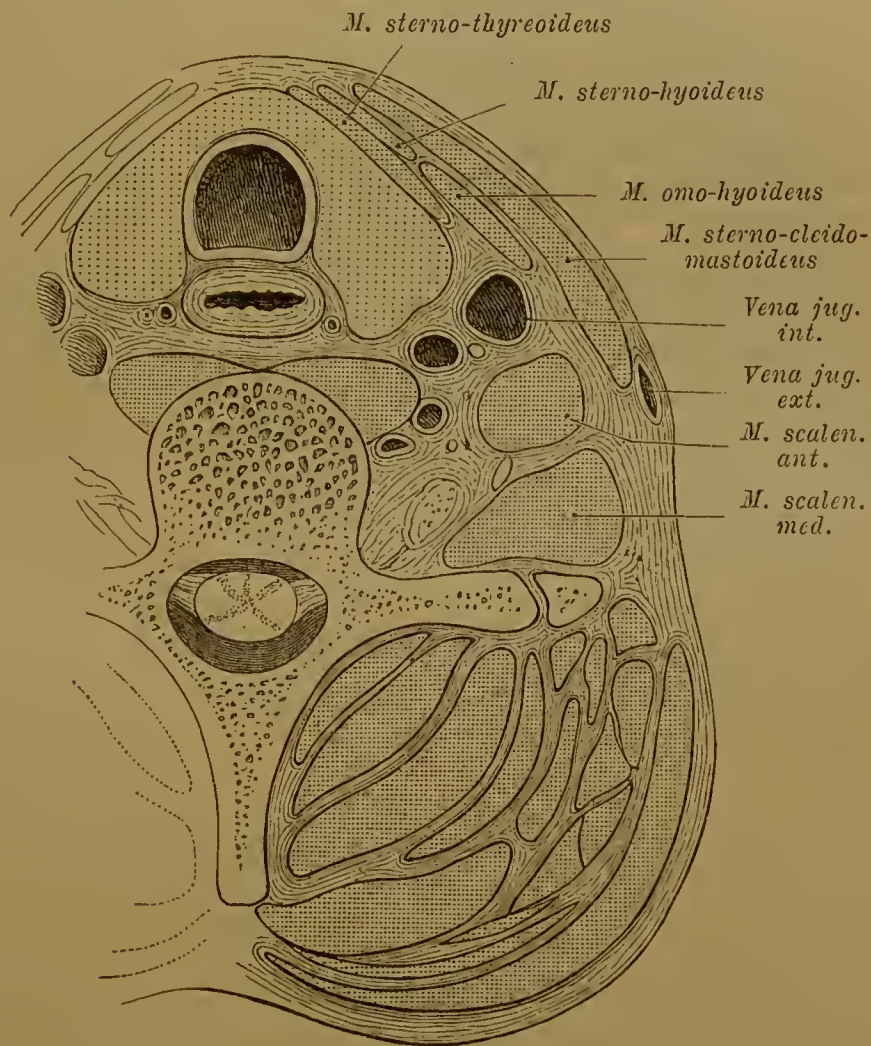 M. sterno-thyreoideus
M. sterno-hyoideus
M. omo-hyoideus
M. sterno-cleido-
mastoideus
Vena jug.
int.
Vena jug.
ext.
M. scalen.
ant.
M. scalen.
med.